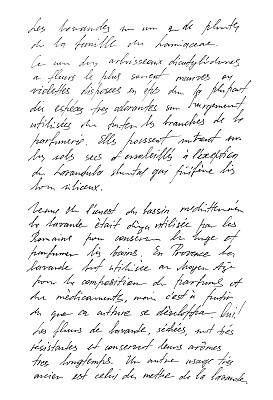 Les lavandes un de plantes
de la famille des lamiaceae.
Ce sont des arbrisseaux dicotylédones
à fleurs le plus souvent mauves ou
violettes disposées en épis dont la plupart
des espèces, très odorantes sont largement
utilisées dans toutes les branches de la
parfumerie. Elles poussent surtout sur
les sols secs et ensoleillés à l'exception
de Lavandula qui préfère les
sols siliceux.
Venue de l'ouest du bassin méditerranéen
la lavande était déjà utilisée par les
Romains pour conserver le linge et
parfumer les bains. En Provence la
lavande fut utilisée au Moyen Âge
pour la composition de parfums et
de médicaments, mais c'est à partir
du que sa culture se développa. Oui!
Les fleurs de lavande, séchées, sont très
résistantes et conservent leurs arômes
très longtemps. Un autre usage très
ancien est celui de mettre de la lavande